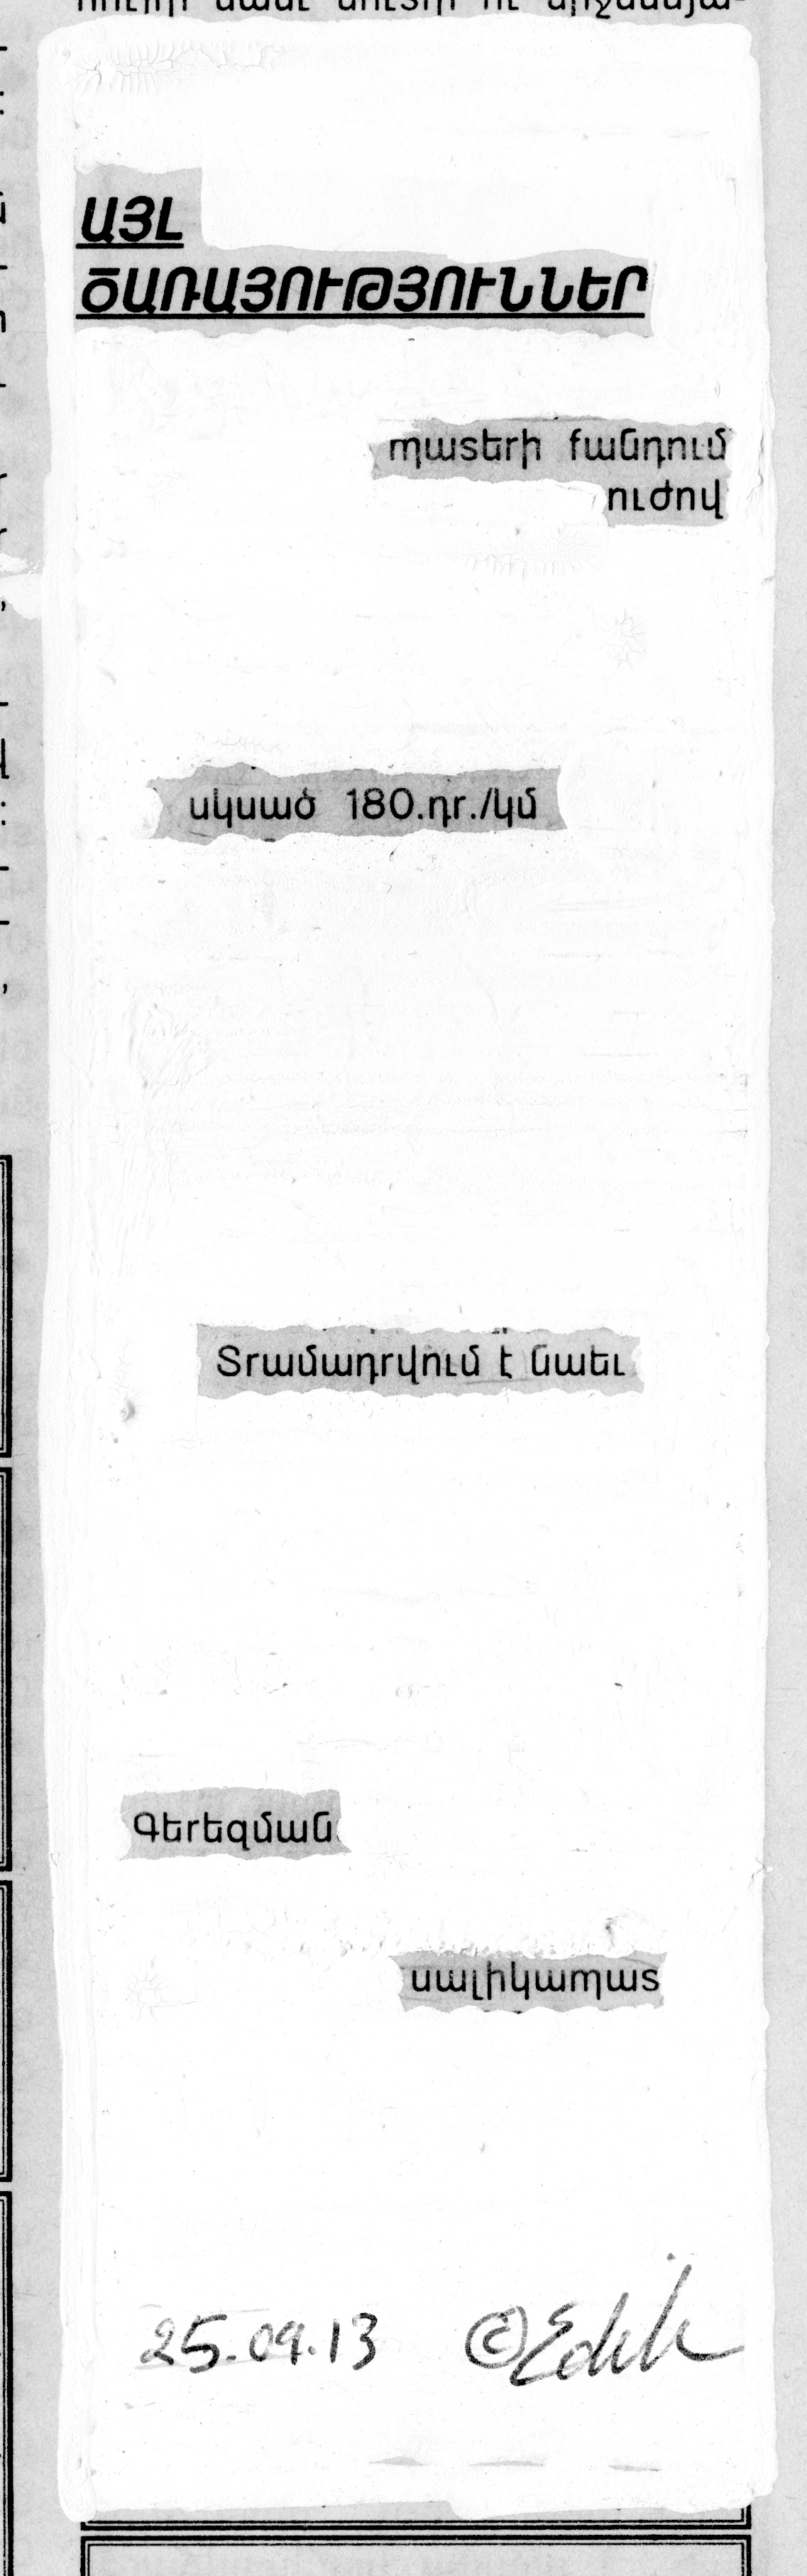 ԱՅԼ
ԾԱՌԱՅՈՒԹՅՈՒՆՆԵՐ
պատերի քանդում
ուժով
սկսած 180.դր./կմ
Տրամադրվում է նաեւ
Գերեզման
սալիկապատ
25.09.13 ©Edik